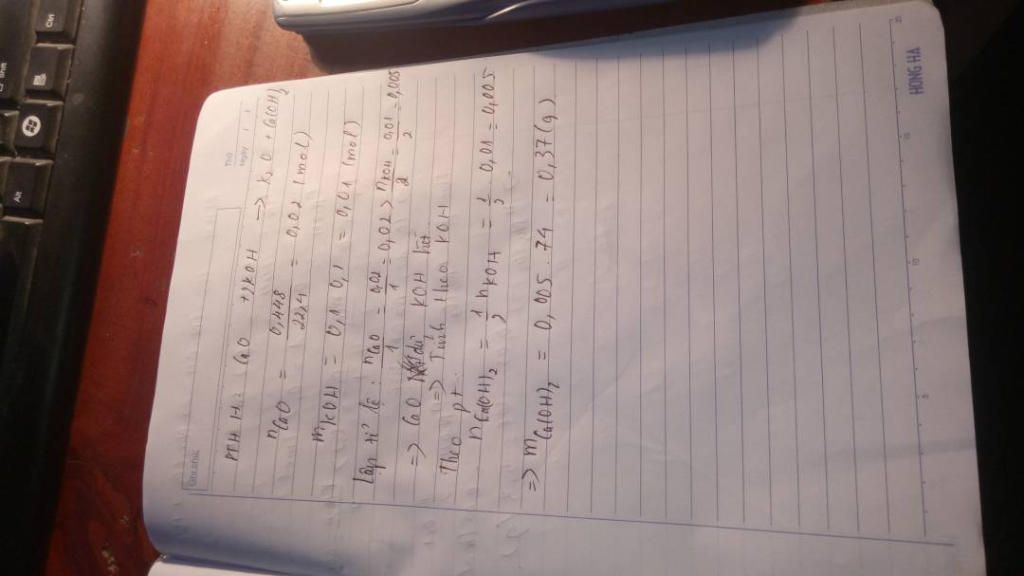 Thứ
Ngày
PTHH: CaO + 2KOH → K2O + Ca(OH)2
nCaO = 0,448/22,4 = 0,02 (mol)
mKOH = 0,1 . 0,1 = 0,01 (mol)
Lập tỉ lệ. nCaO/1 = 0,02/1 = 0,02 > nKOH/2 = 0,01/2 = 0,005
=> CaO dư KOH hết
=> Tính theo KOH
Theo pt.
nCa(OH)2 = 1/2 nKOH = 1/2 0,01 = 0,005
=> mCa(OH)2 = 0,005 . 74 = 0,37 (g)
HONG HA
Ctrl
Alt